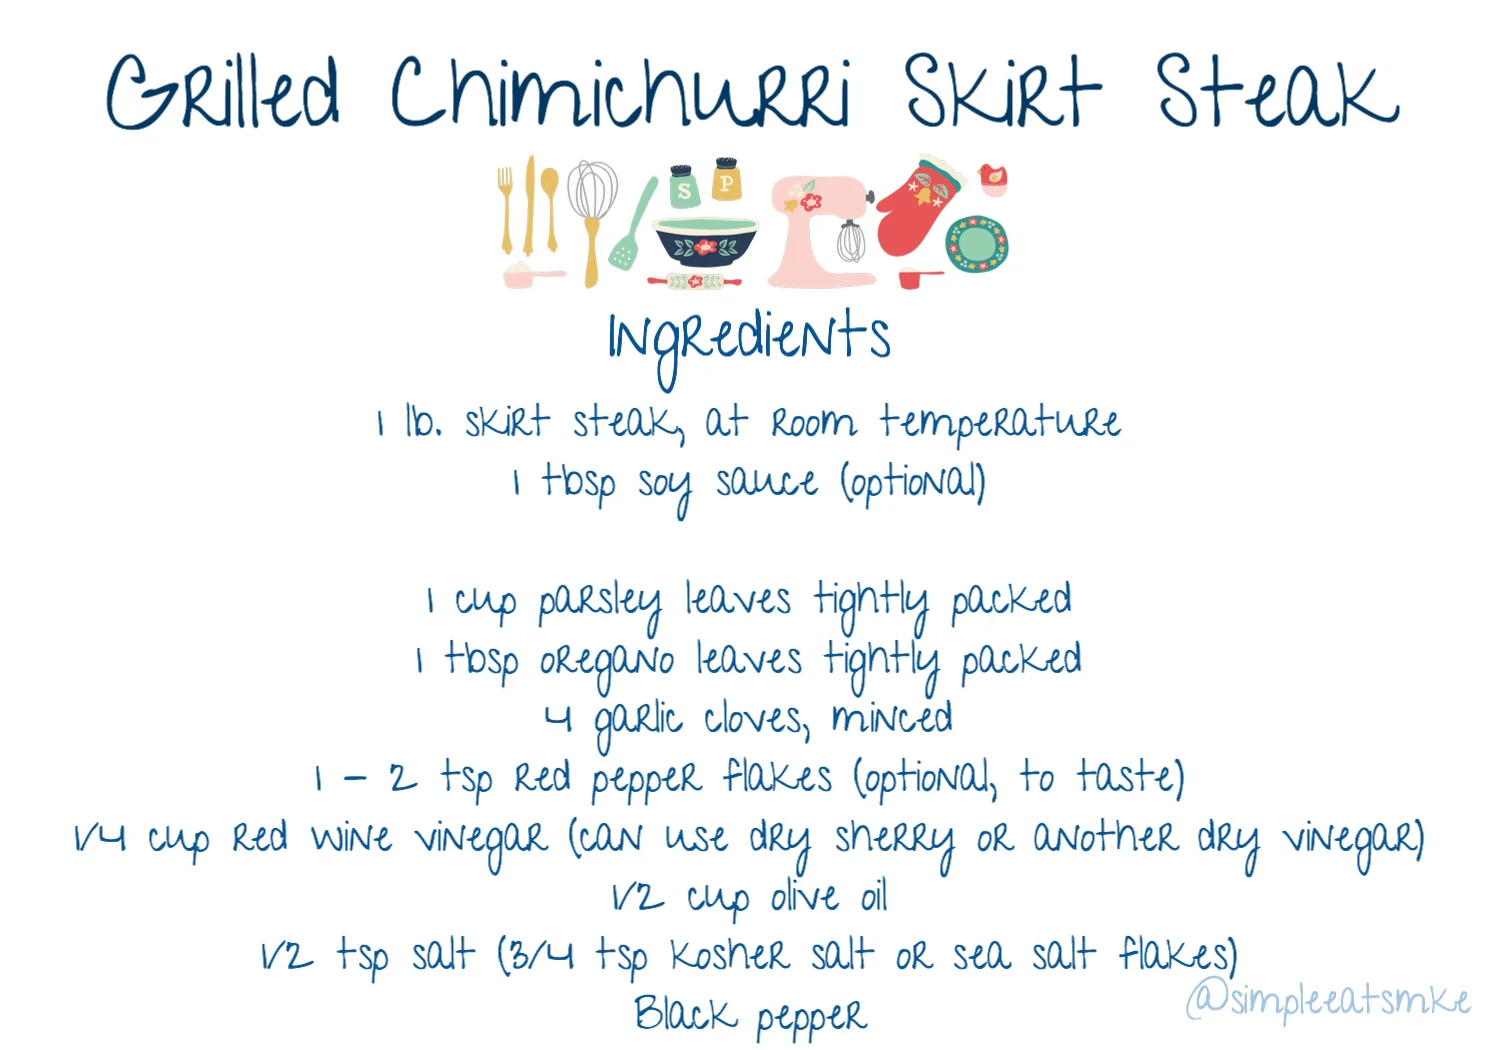 Grilled Chimichurri Skirt Steak
S P
Ingredients
1 lb. skirt steak, at room temperature
1 tbsp soy sauce (optional)
1 cup parsley leaves tightly packed
1 tbsp oregano leaves tightly packed
4 garlic cloves, minced
1 - 2 tsp red pepper flakes (optional, to taste)
1/4 cup red wine vinegar (can use dry sherry or another dry vinegar)
1/2 cup olive oil
1/2 tsp salt (3/4 tsp kosher salt or sea salt flakes)
Black pepper
@simpleeatsmke